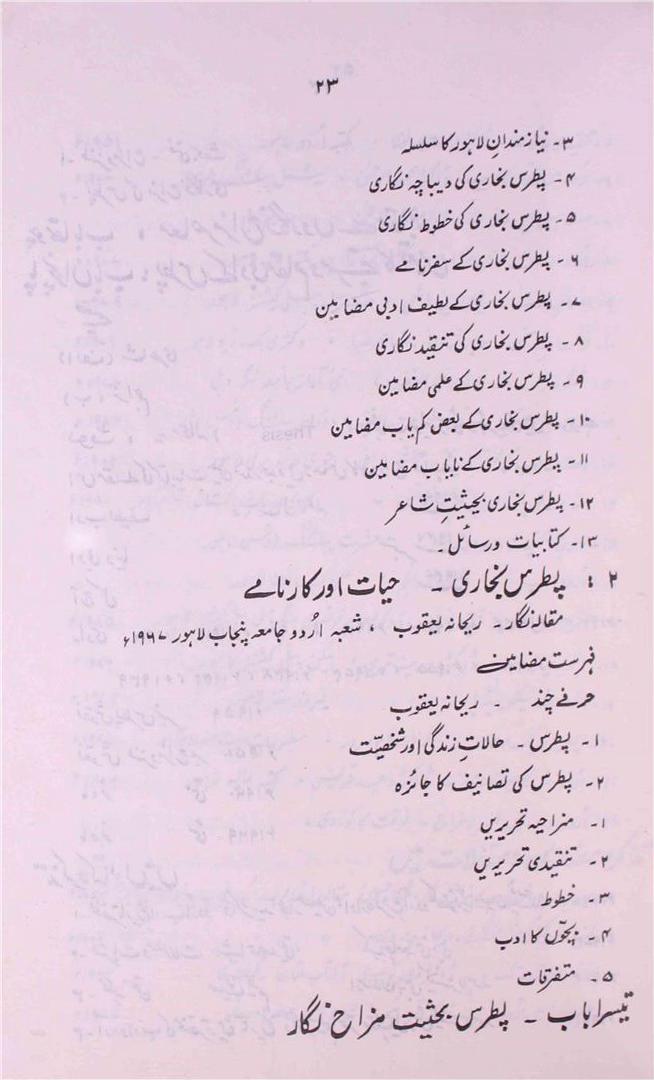 ۲۳
۳۔ نیازمندانِ لاہور کا سلسلہ
۴۔ پطرس بخاری کی دیباچہ نگاری
۵۔ پطرس بخاری کی خطوط نگاری
۶۔ پطرس بخاری کے سفرنامے
۷۔ پطرس بخاری کے لطیف ادبی مضامین
۸۔ پطرس بخاری کی تنقید نگاری
۹۔ پطرس بخاری کے علمی مضامین
۱۰۔ پطرس بخاری کے بعض کم یاب مضامین
۱۱۔ پطرس بخاری کے نایاب مضامین
۱۲۔ پطرس بخاری بحیثیتِ شاعر
۱۳۔ کتابیات ورسائل۔
۲ : پطرس بخاری ۔ حیات اور کارنامے
مقالہ نگار۔ ریحانہ یعقوب ، شعبہ اُردو جامعہ پنجاب لاہور ۱۹۶۷ء
فہرست مضامین
حرفے چند ۔ ریحانہ یعقوب
۱۔ پطرس ۔ حالاتِ زندگی اور شخصیّت
۲۔ پطرس کی تصانیف کا جائزہ
۱۔ مزاحیہ تحریریں
۲۔ تنقیدی تحریریں
۳۔ خطوط
۴۔ بچّوں کا ادب
۵۔ متفرقات
تیسرا باب ۔ پطرس بحثیت مزاح نگار